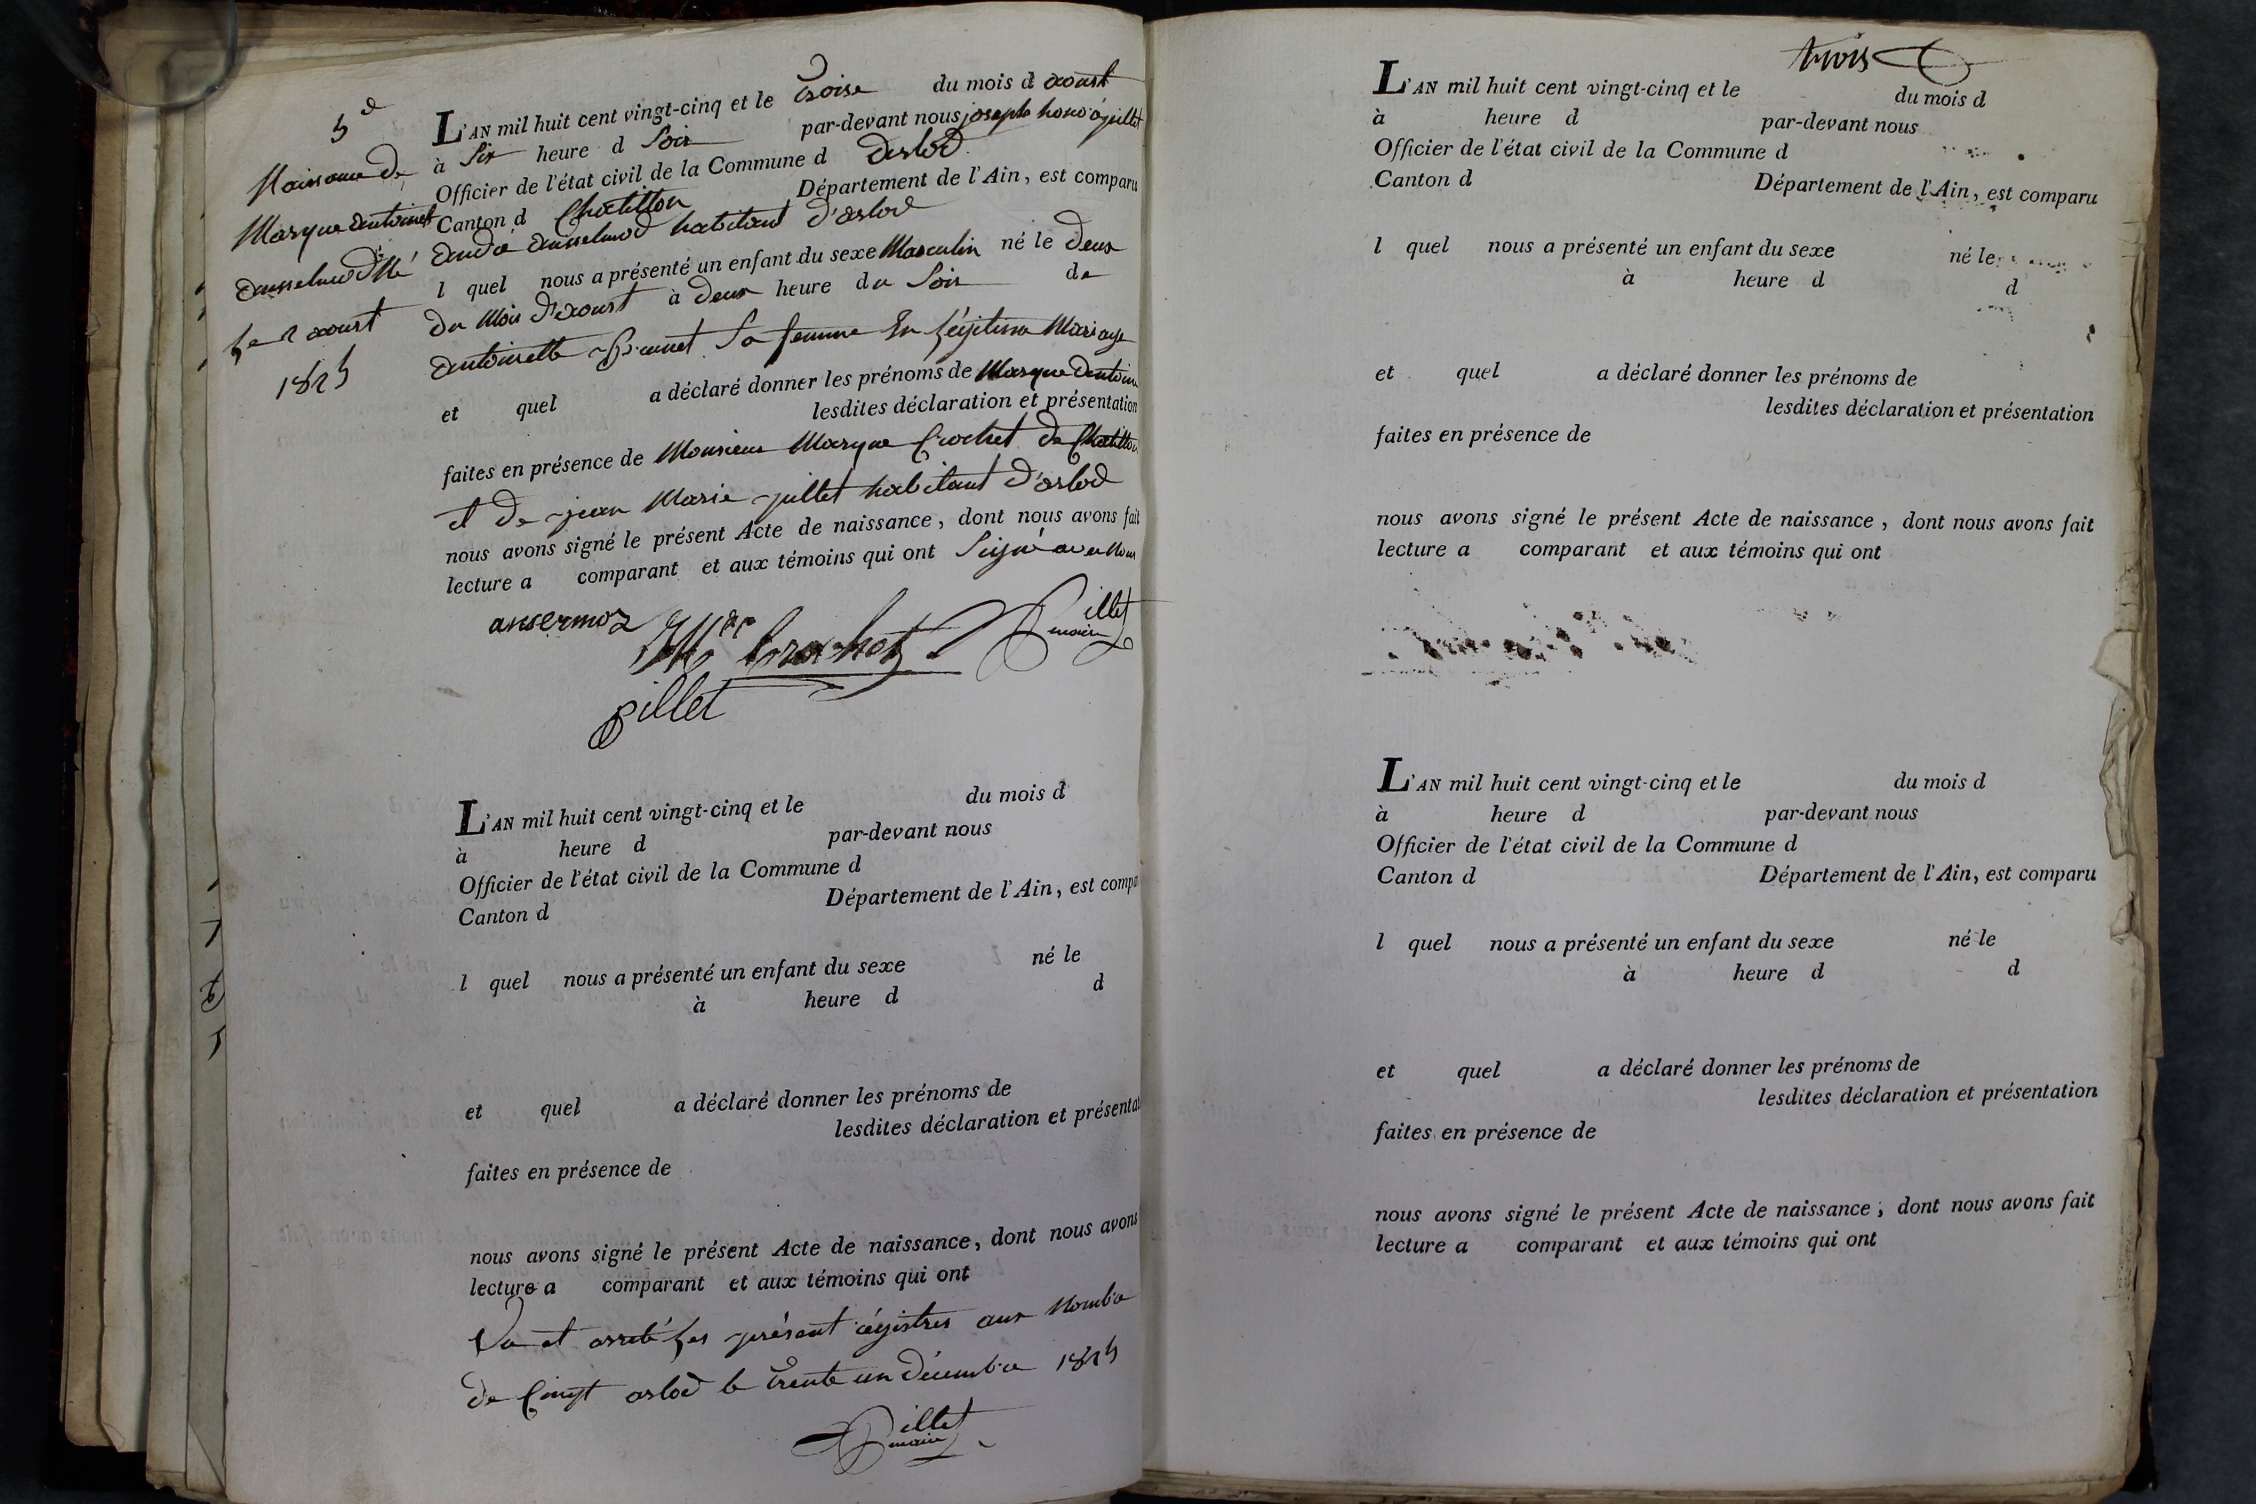 5e
Naissance de
Marque antoine
Ansselmod Né
Le 2 aoust
1825
L'AN mil huit cent vingt-cinq et le troise du mois d aoust
à Six heure d Soir par-devant nous joseph honoré pillet
Officier de l'état civil de la Commune d darlod
Canton d Chatillon Département de l'Ain, est comparu
André ansselmod habitant d'arlod
l quel nous a présenté un enfant du sexe Masculin né le deux
du Mois d'aoust à deux heure du Soir de
antoinette Sa femme En Légitime Mariage
et quel a déclaré donner les prénoms de Marque antoine
lesdites déclaration et présentation
faites en présence de Monsieur Marque Crochet de Chatillon
et de jean Marie pillet habitant d'arlod
nous avons signé le présent Acte de naissance, dont nous avons fait
lecture a comparant et aux témoins qui ont Signé avec Nous
ansermoz crochet pillet maire
pillet
L'AN mil huit cent vingt-cinq et le du mois d
à heure d par-devant nous
Officier de l'état civil de la Commune d
Canton d Département de l'Ain, est compa
l quel nous a présenté un enfant du sexe né le
à heure d d
et quel a déclaré donner les prénoms de
lesdites déclaration et présentat
faites en présence de
nous avons signé le présent Acte de naissance, dont nous avons
lecture a comparant et aux témoins qui ont
Vu et arreté Les présent régistres aux Nombre
de Cinqt arlod le trente un décembre 1825
pillet maire
trois
L'AN mil huit cent vingt-cinq et le du mois d
à heure d par-devant nous
Officier de l'état civil de la Commune d
Canton d Département de l'Ain, est comparu
l quel nous a présenté un enfant du sexe né le
à heure d d
et quel a déclaré donner les prénoms de
lesdites déclaration et présentation
faites en présence de
nous avons signé le présent Acte de naissance, dont nous avons fait
lecture a comparant et aux témoins qui ont
L'AN mil huit cent vingt-cinq et le du mois d
à heure d par-devant nous
Officier de l'état civil de la Commune d
Canton d Département de l'Ain, est comparu
l quel nous a présenté un enfant du sexe né le
à heure d d
et quel a déclaré donner les prénoms de
lesdites déclaration et présentation
faites en présence de
nous avons signé le présent Acte de naissance, dont nous avons fait
lecture a comparant et aux témoins qui ont